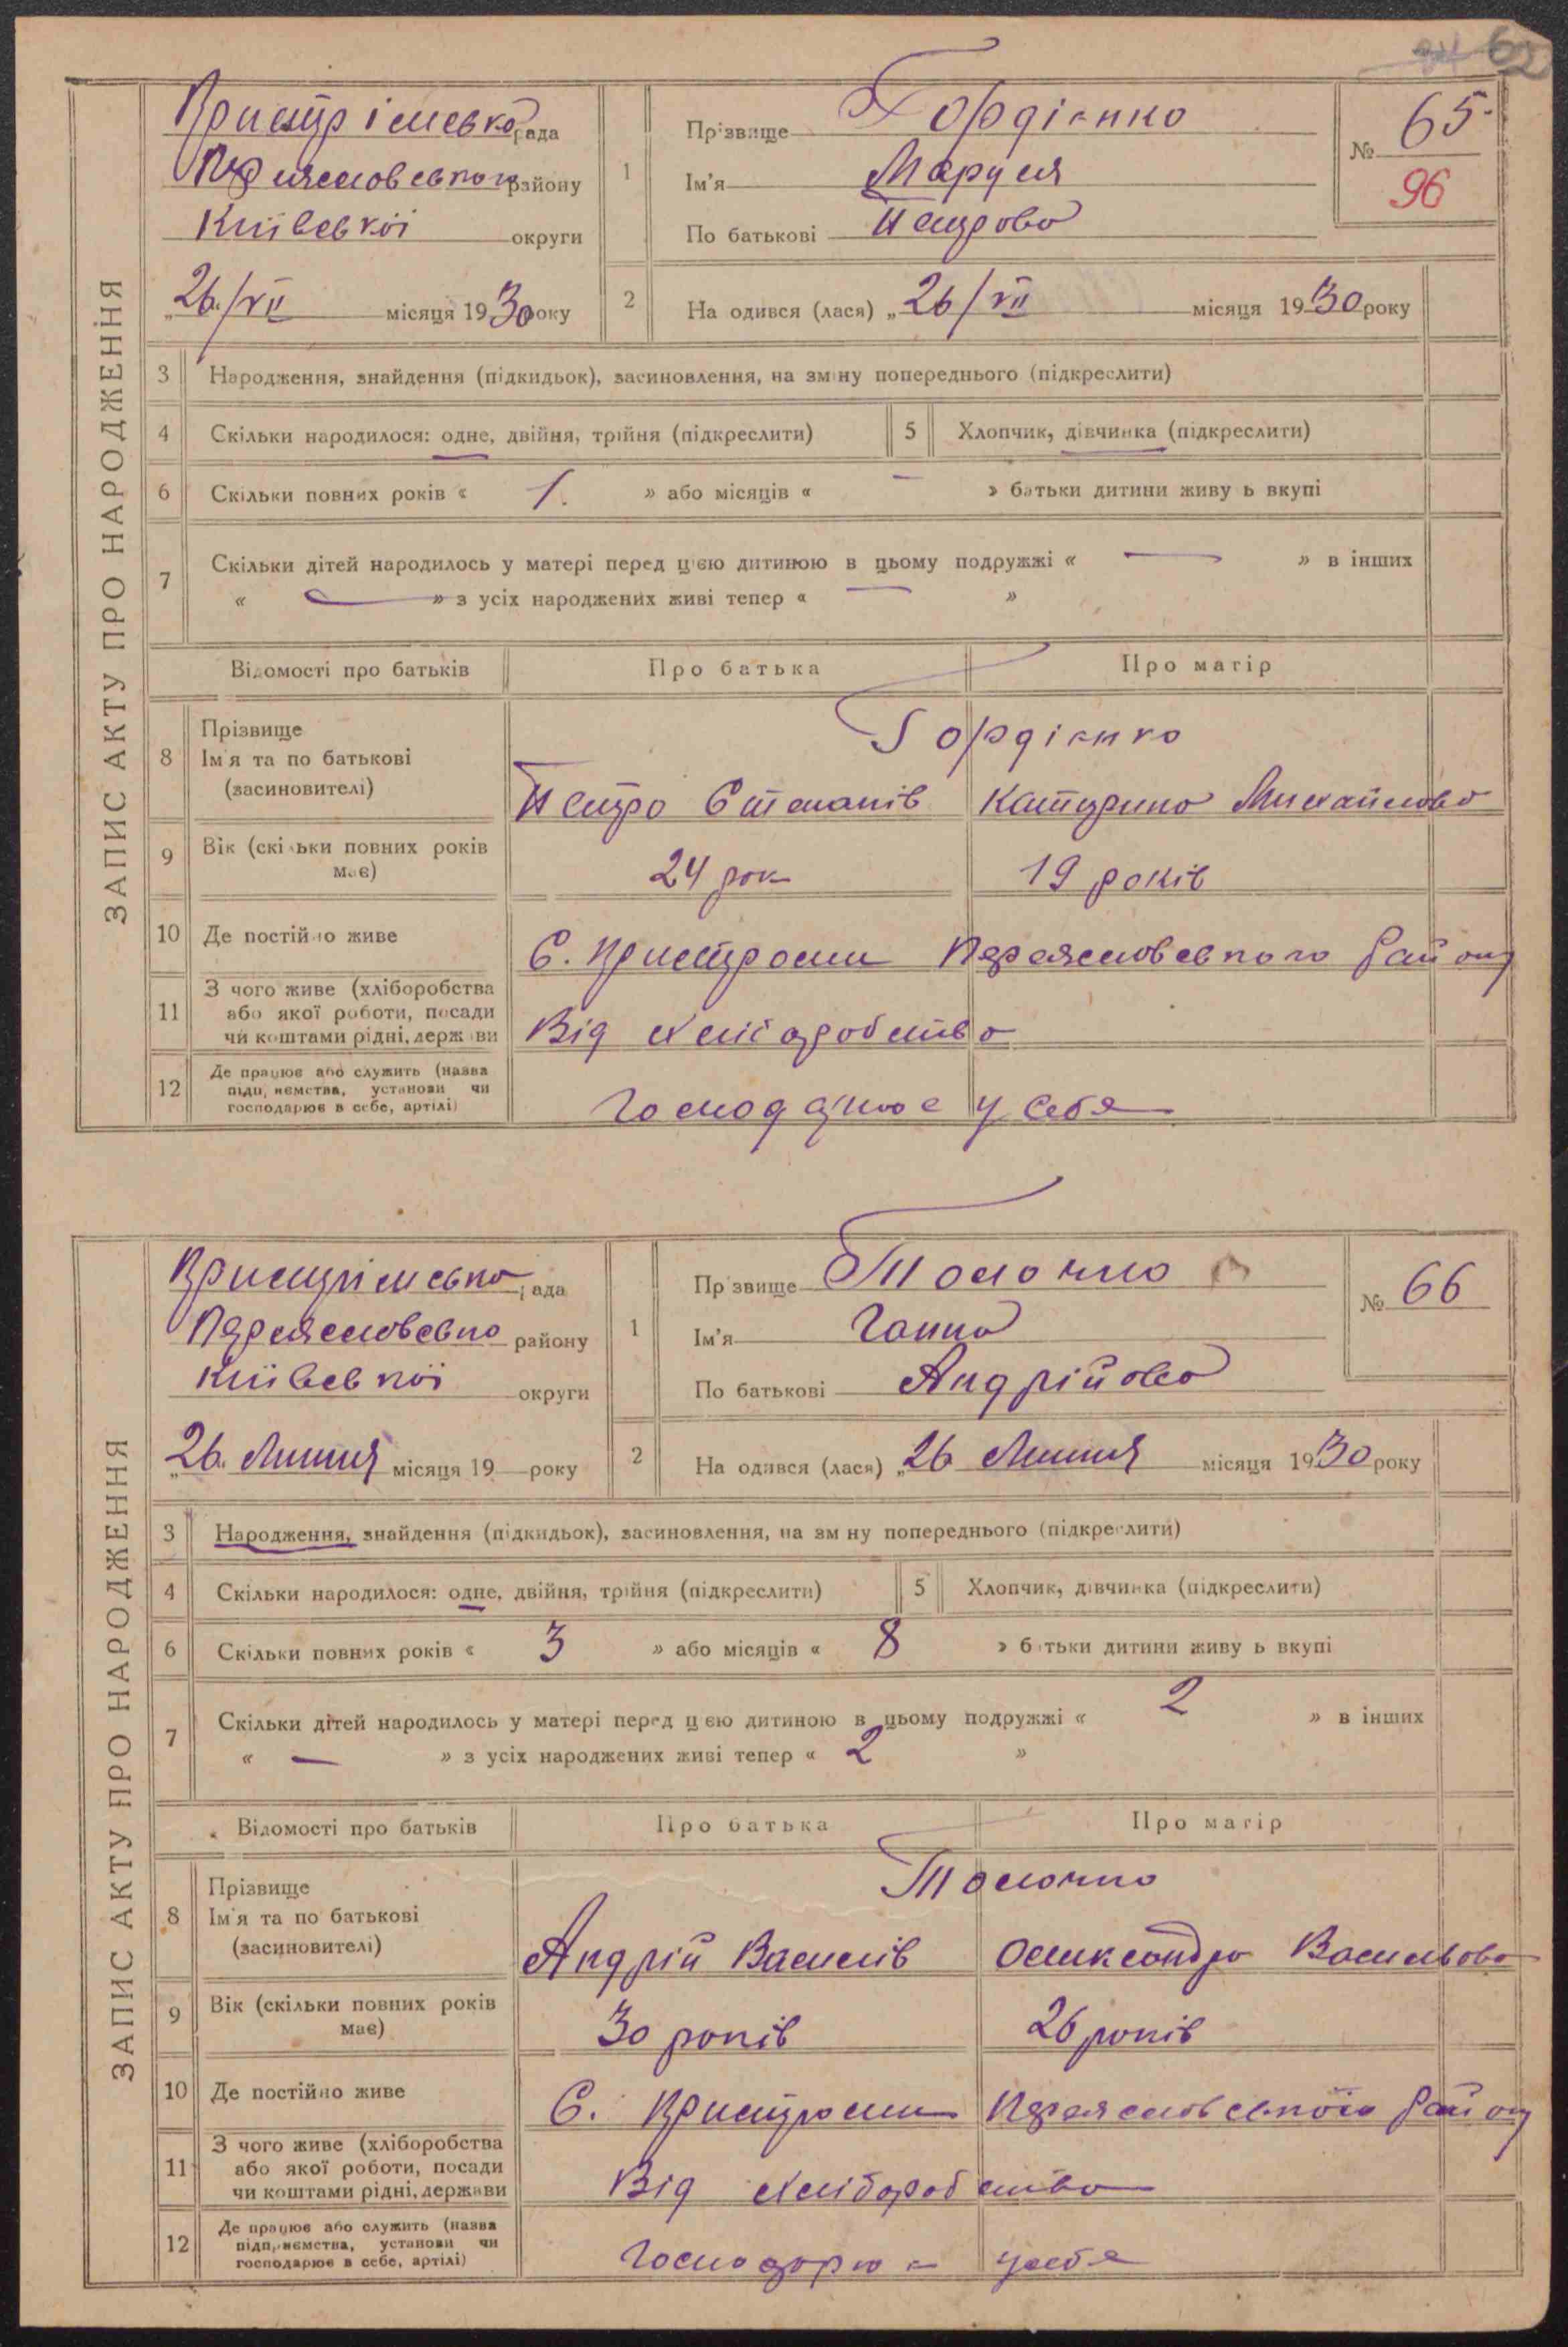 62
ЗАПИС АКТУ ПРО НАРОДЖЕННЯ
Пристрімська рада
Переяславського району
Київської округи
„26/VII місяця 1930 року
1 Прізвище Гордієнко
Ім'я Маруся
По батькові Петрова
№ 65
96
2 На одився (лася) „26/VII місяця 1930 року
3 Народження, знайдення (підкидьок), засиновлення, на зміну попереднього (підкреслити)
4 Скільки народилося: одне, двійня, трійня (підкреслити)
5 Хлопчик, дівчинка (підкреслити)
6 Скільки повних років « 1. » або місяців « — » батьки дитини живу ь вкупі
7 Скільки дітей народилось у матері перед цією дитиною в цьому подружжі « — » в інших
« — » з усіх народжених живі тепер « — »
Відомості про батьків Про батька Про матір
8 Прізвище
Ім'я та по батькові
(засиновителі)
Гордієнко
Петро Степанів Катерина Михайлова
9 Вік (скільки повних років
має)
24 рок 19 років
10 Де постійно живе
С. Пристроми Переяславського району
11 З чого живе (хліборобства
або якої роботи, посади
чи коштами рідні, держави
Від хліборобства
12 Де працює або служить (назва
підприємства, установи чи
господарює в себе, артілі)
Господарює у себя
ЗАПИС АКТУ ПРО НАРОДЖЕННЯ
Пристрімська рада
Переяславська району
Київської округи
„26. Липня місяця 19 — року
1 Прізвище Толочко
Ім'я Ганна
По батькові Андрійова
№ 66
2 На одився (лася) „26 Липня місяця 1930 року
3 Народження, знайдення (підкидьок), засиновлення, на зміну попереднього (підкреслити)
4 Скільки народилося: одне, двійня, трійня (підкреслити)
5 Хлопчик, дівчинка (підкреслити)
6 Скільки повних років « 3 » або місяців « 8 » батьки дитини живу ь вкупі
7 Скільки дітей народилось у матері перед цією дитиною в цьому подружжі « 2 » в інших
« — » з усіх народжених живі тепер « 2 »
Відомості про батьків Про батька Про матір
8 Прізвище
Ім'я та по батькові
(засиновителі)
Толочко
Андрій Василів Олександра Васильова
9 Вік (скільки повних років
має)
30 років 26 років
10 Де постійно живе
С. Пристроми Переяславського району
11 З чого живе (хліборобства
або якої роботи, посади
чи коштами рідні, держави
Від хліборобства
12 Де працює або служить (назва
підприємства, установи чи
господарює в себе, артілі)
Господарює у себя